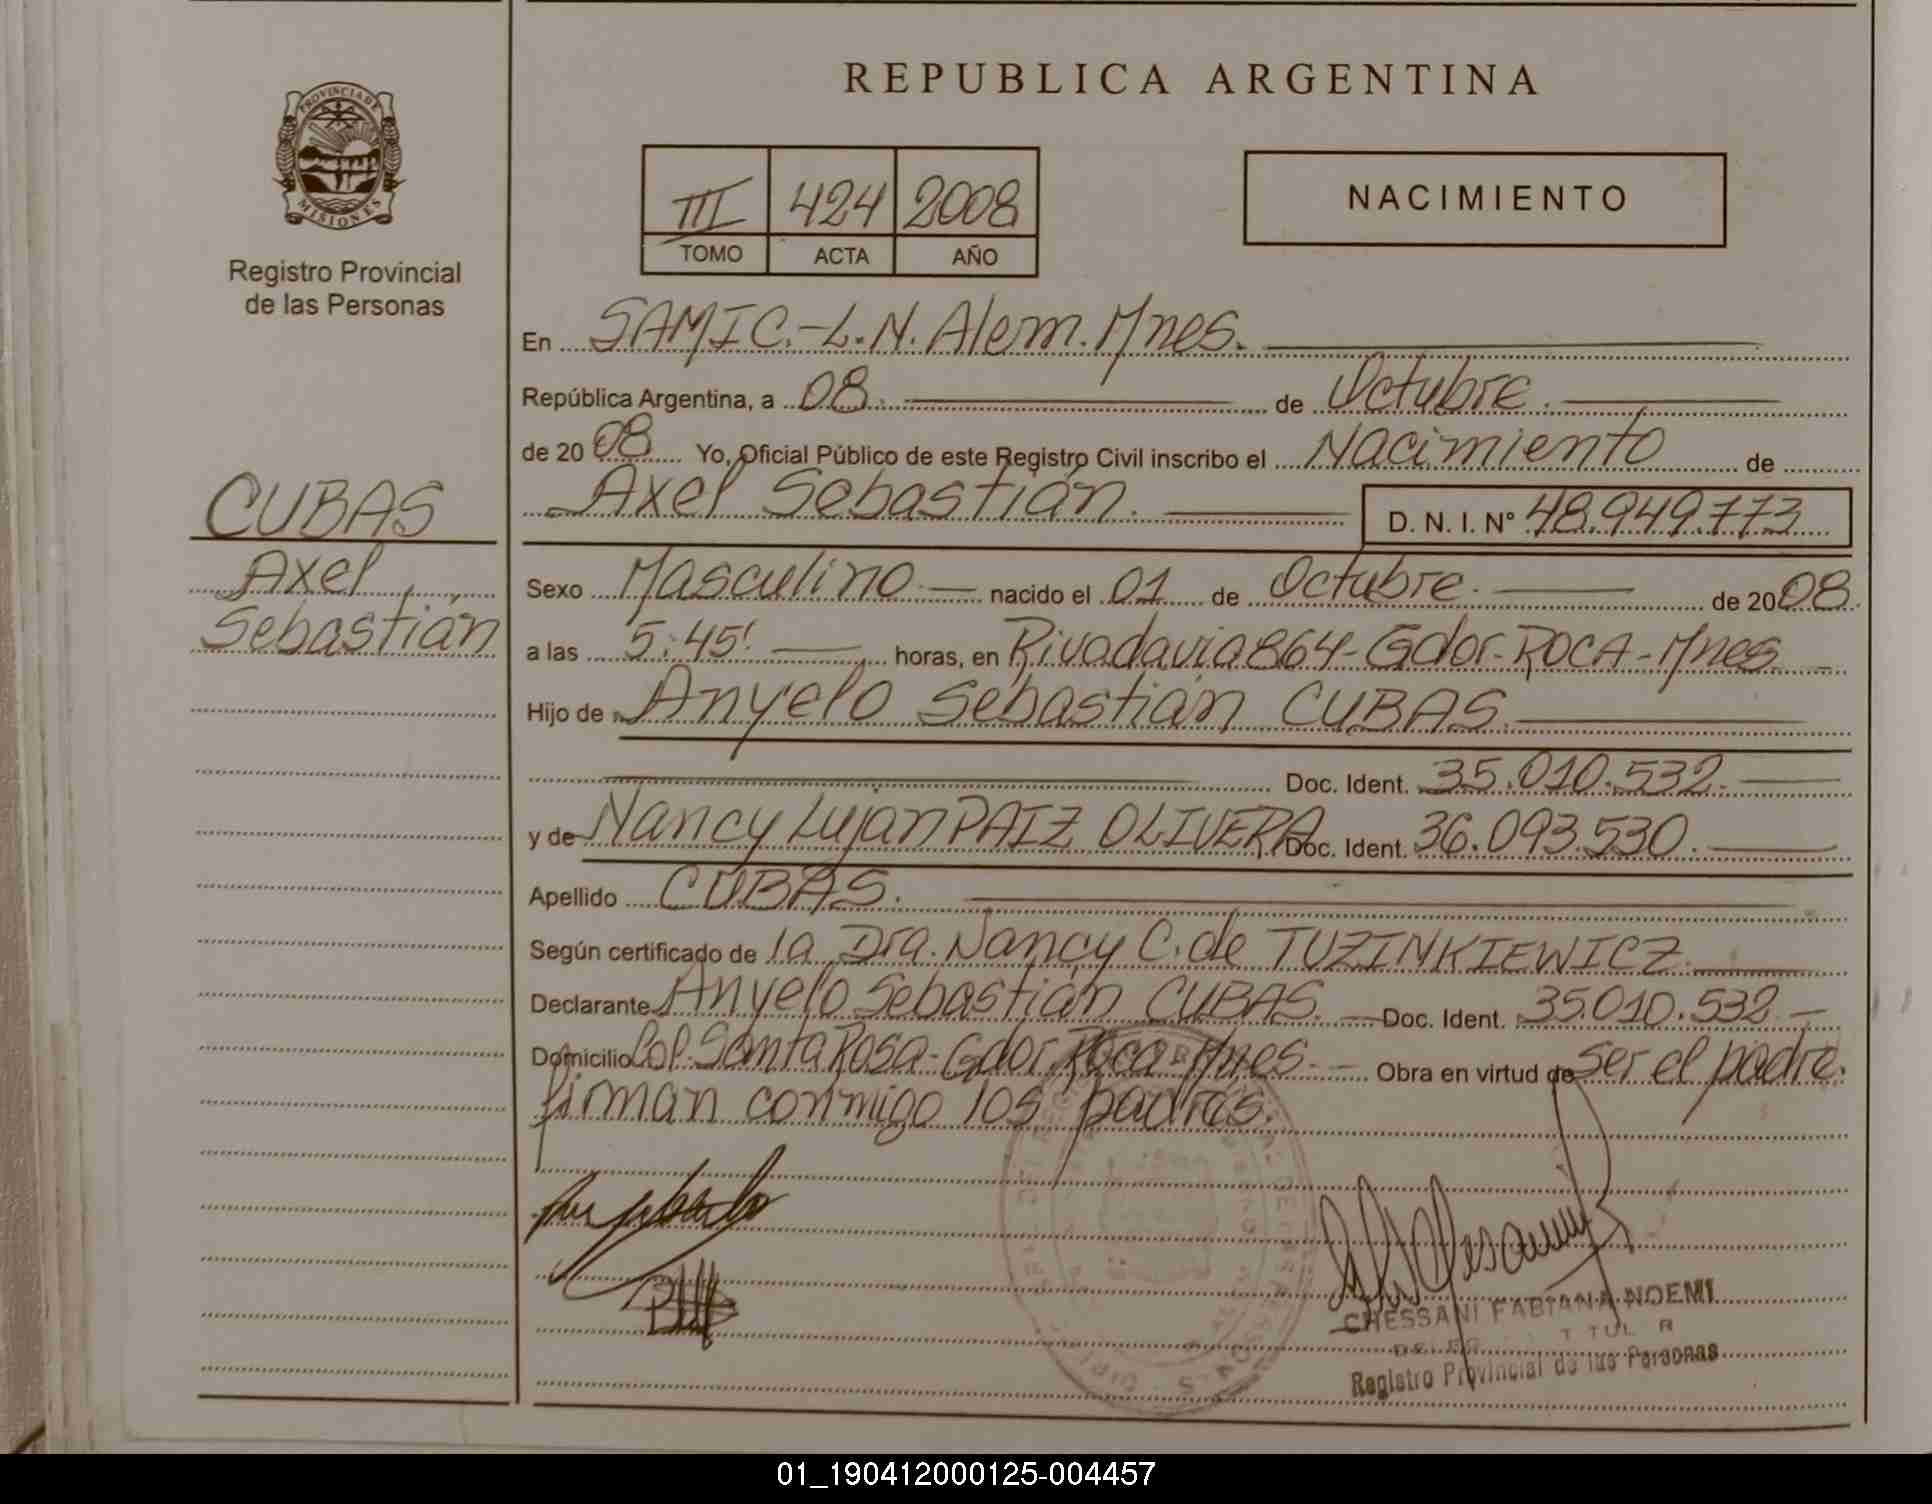 PROVINCIA DE
MISIONES
Registro Provincial
de las Personas
CUBAS
Axel
Sebastián
REPUBLICA ARGENTINA
III 424 2008
TOMO ACTA AÑO
NACIMIENTO
En SAMIC.-L.N. Alem. Mnes.
República Argentina, a 08. de Octubre.
de 20 08 Yo, Oficial Público de este Registro Civil inscribo el Nacimiento de
Axel Sebastián. D. N. I. N° 48.949.773
Sexo Masculino nacido el 01 de Octubre. de 20 08.
a las 5:45' horas, en Rivadavia 864-Gdor-ROCA-Mnes
Hijo de Anyelo Sebastián CUBAS.
Doc. Ident. 35.010.532.
y de Nancy Lujan PAIZ OLIVERA Doc. Ident. 36.093.530.
Apellido CUBAS.
Según certificado de la Dra. Nancy C. de TUZINKIEWICZ.
Declarante Anyelo Sebastián CUBAS. Doc. Ident. 35.010.532
Domicilio Col. Santa Rosa-Gdor. Roca Mnes. Obra en virtud de ser el padre.
firman conmigo los padres.
CHESSANI FABIANA NOEMI
Registro Provincial de las Personas
01_190412000125-004457